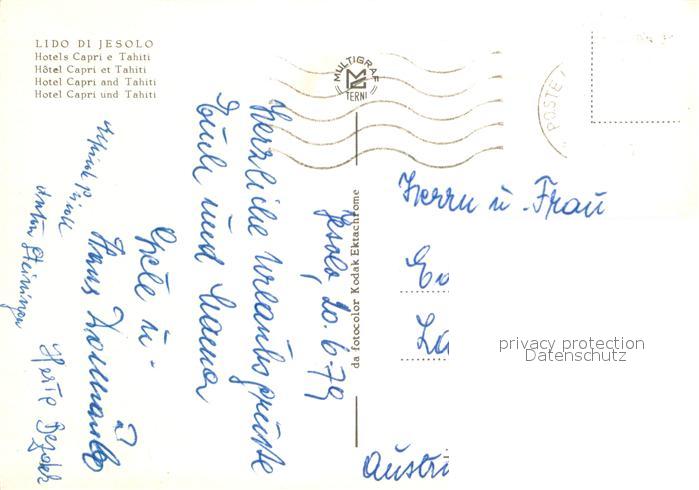 LIDO DI JESOLO
Hotels Capri e Tahiti
Hôtel Capri et Tahiti
Hotel Capri and Tahiti
Hotel Capri und Tahiti
MULTIGRAF
TERNI
POSTE
da fotocolor Kodak Ektachrome
Jesolo, 20.6.79
Herzliche Urlaubsgrüsse
Euch und Mama
Grete u.
Hans
Herta
Anton Steininger
Herrn u. Frau
Austri
privacy protection
Datenschutz